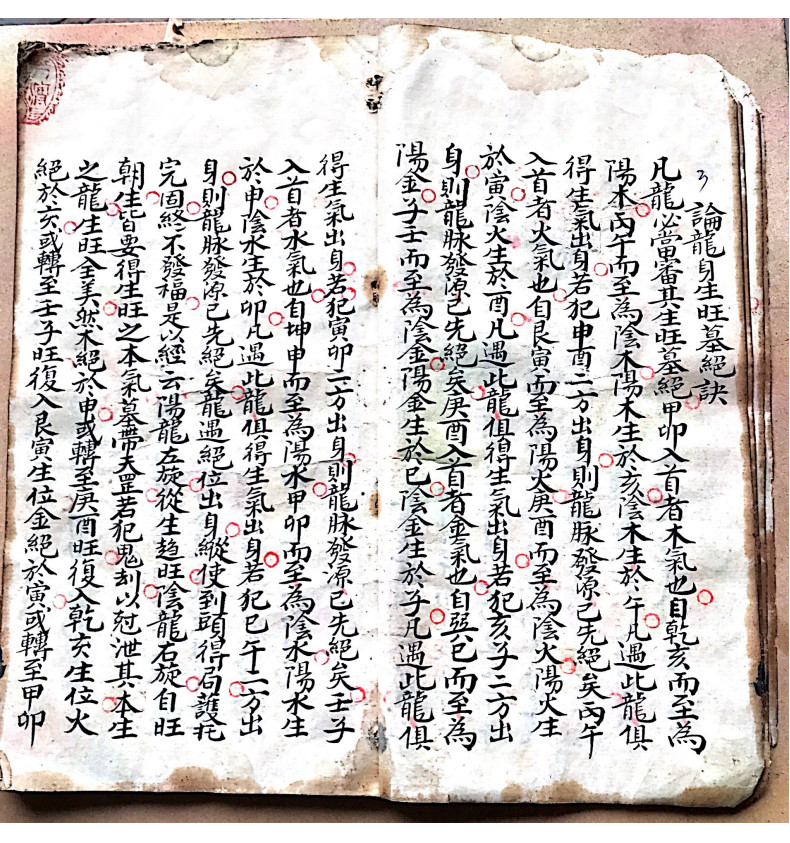 3
論龍身生旺墓絕訣
凡龍必當審其生旺墓絕甲卯入首者木氣也自乾亥而至為
陽木丙午而至為陰木陽木生於亥陰木生於午凡遇此龍俱
得生氣出身若犯申酉二方出身則龍脉發源已先絕矣丙午
入首者火氣也自艮寅而至為陽火庚酉而至為陰火陽火生
於寅陰火生於酉凡遇此龍俱得生氣出身若犯亥子二方出
身則龍脉發源已先絕矣庚酉入首者金氣也自巽巳而至為
陽金子壬而至為陰金陽金生於巳陰金生於子凡遇此龍俱
得生氣出身若犯寅卯二方出身則龍脉發源已先絕矣壬子
入首者水氣也自坤申而至為陽水甲卯而至為陰水陽水生
於申陰水生於卯凡遇此龍俱得生氣出身若犯巳午二方出
身則龍脉發源已先絕矣龍遇絕位出身縱使到頭得局護托
完固終不發福是以經云陽龍左旋從生趋旺陰龍右旋自旺
朝生皆要得生旺之本氣墓帶天罡若犯鬼刦以尅泄其本生
之龍生旺全美然木絕於申或轉至庚酉旺復入乾亥生位火
絕於亥或轉至壬子旺復入艮寅生位金絕於寅或轉至甲卯